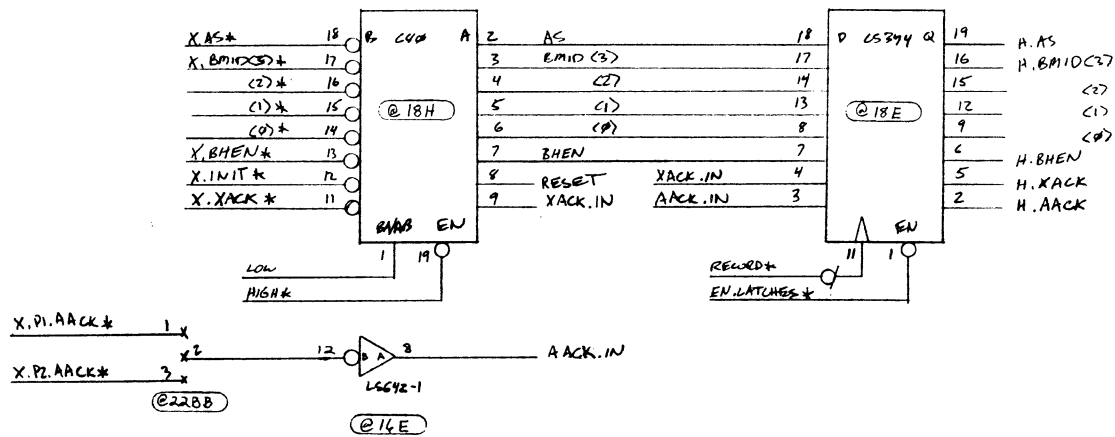 X.AS* 18 B C40 A 2 AS 18 D LS374 Q 19 H.AS
X.BMID(3)* 17 3 BMID(3) 17 16 H.BMID(3)
(2)* 16 4 (2) 14 15 (2)
(1)* 15 @18H 5 (1) 13 @18E 12 (1)
(0)* 14 6 (0) 8 9 (0)
X.BHEN* 13 7 BHEN 7 6 H.BHEN
X.INIT* 12 8 RESET XACK.IN 4 5 H.XACK
X.XACK* 11 9 XACK.IN AACK.IN 3 2 H.AACK
BA/AB EN EN
1 19 11 1
LOW RECORD*
HIGH* EN.LATCHES*
X.P1.AACK* 1
2 12 B A 8 AACK.IN
X.P2.AACK* 3 LS642-1
@22BB
@14E